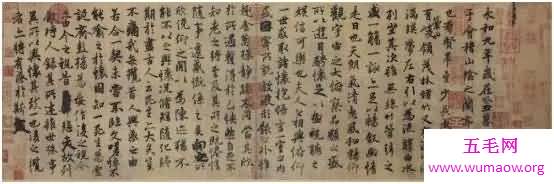 永和九年歲在癸丑
于會稽山陰之蘭亭
也群賢畢至少長咸
有崇山峻領茂林脩竹又
湍暎帶左右引以為流觴曲水
列坐其次雖無絲竹管弦之
盛一觴一詠亦足以暢敘幽情
是日也天朗氣清惠風和暢仰
觀宇宙之大俯察品類之盛
所以遊目騁懷足以極視聽之
娛信可樂也夫人之相與俯仰
一世或取諸懷抱悟言一室之內
或因寄所託放浪形骸之外雖
趣舍萬殊靜躁不同當其欣
於所遇蹔得於己怏然自足不
知老之將至及其所之既惓情
隨事遷感慨係之矣向之所
欣俛仰之閒以為陳迹猶不
能不以之興懷況脩短隨化終
期於盡古人云死生亦大矣豈
不痛哉每攬昔人興感之由
若合一契未嘗不臨文嗟悼不
能喻之於懷固知一死生為虛
誕齊彭殤為妄作後之視今
亦由今之視昔悲夫故列
敘時人錄其所述雖世殊事
異所以興懷其致一也後之攬
者亦將有感於斯
五毛网
www.wumaow.org